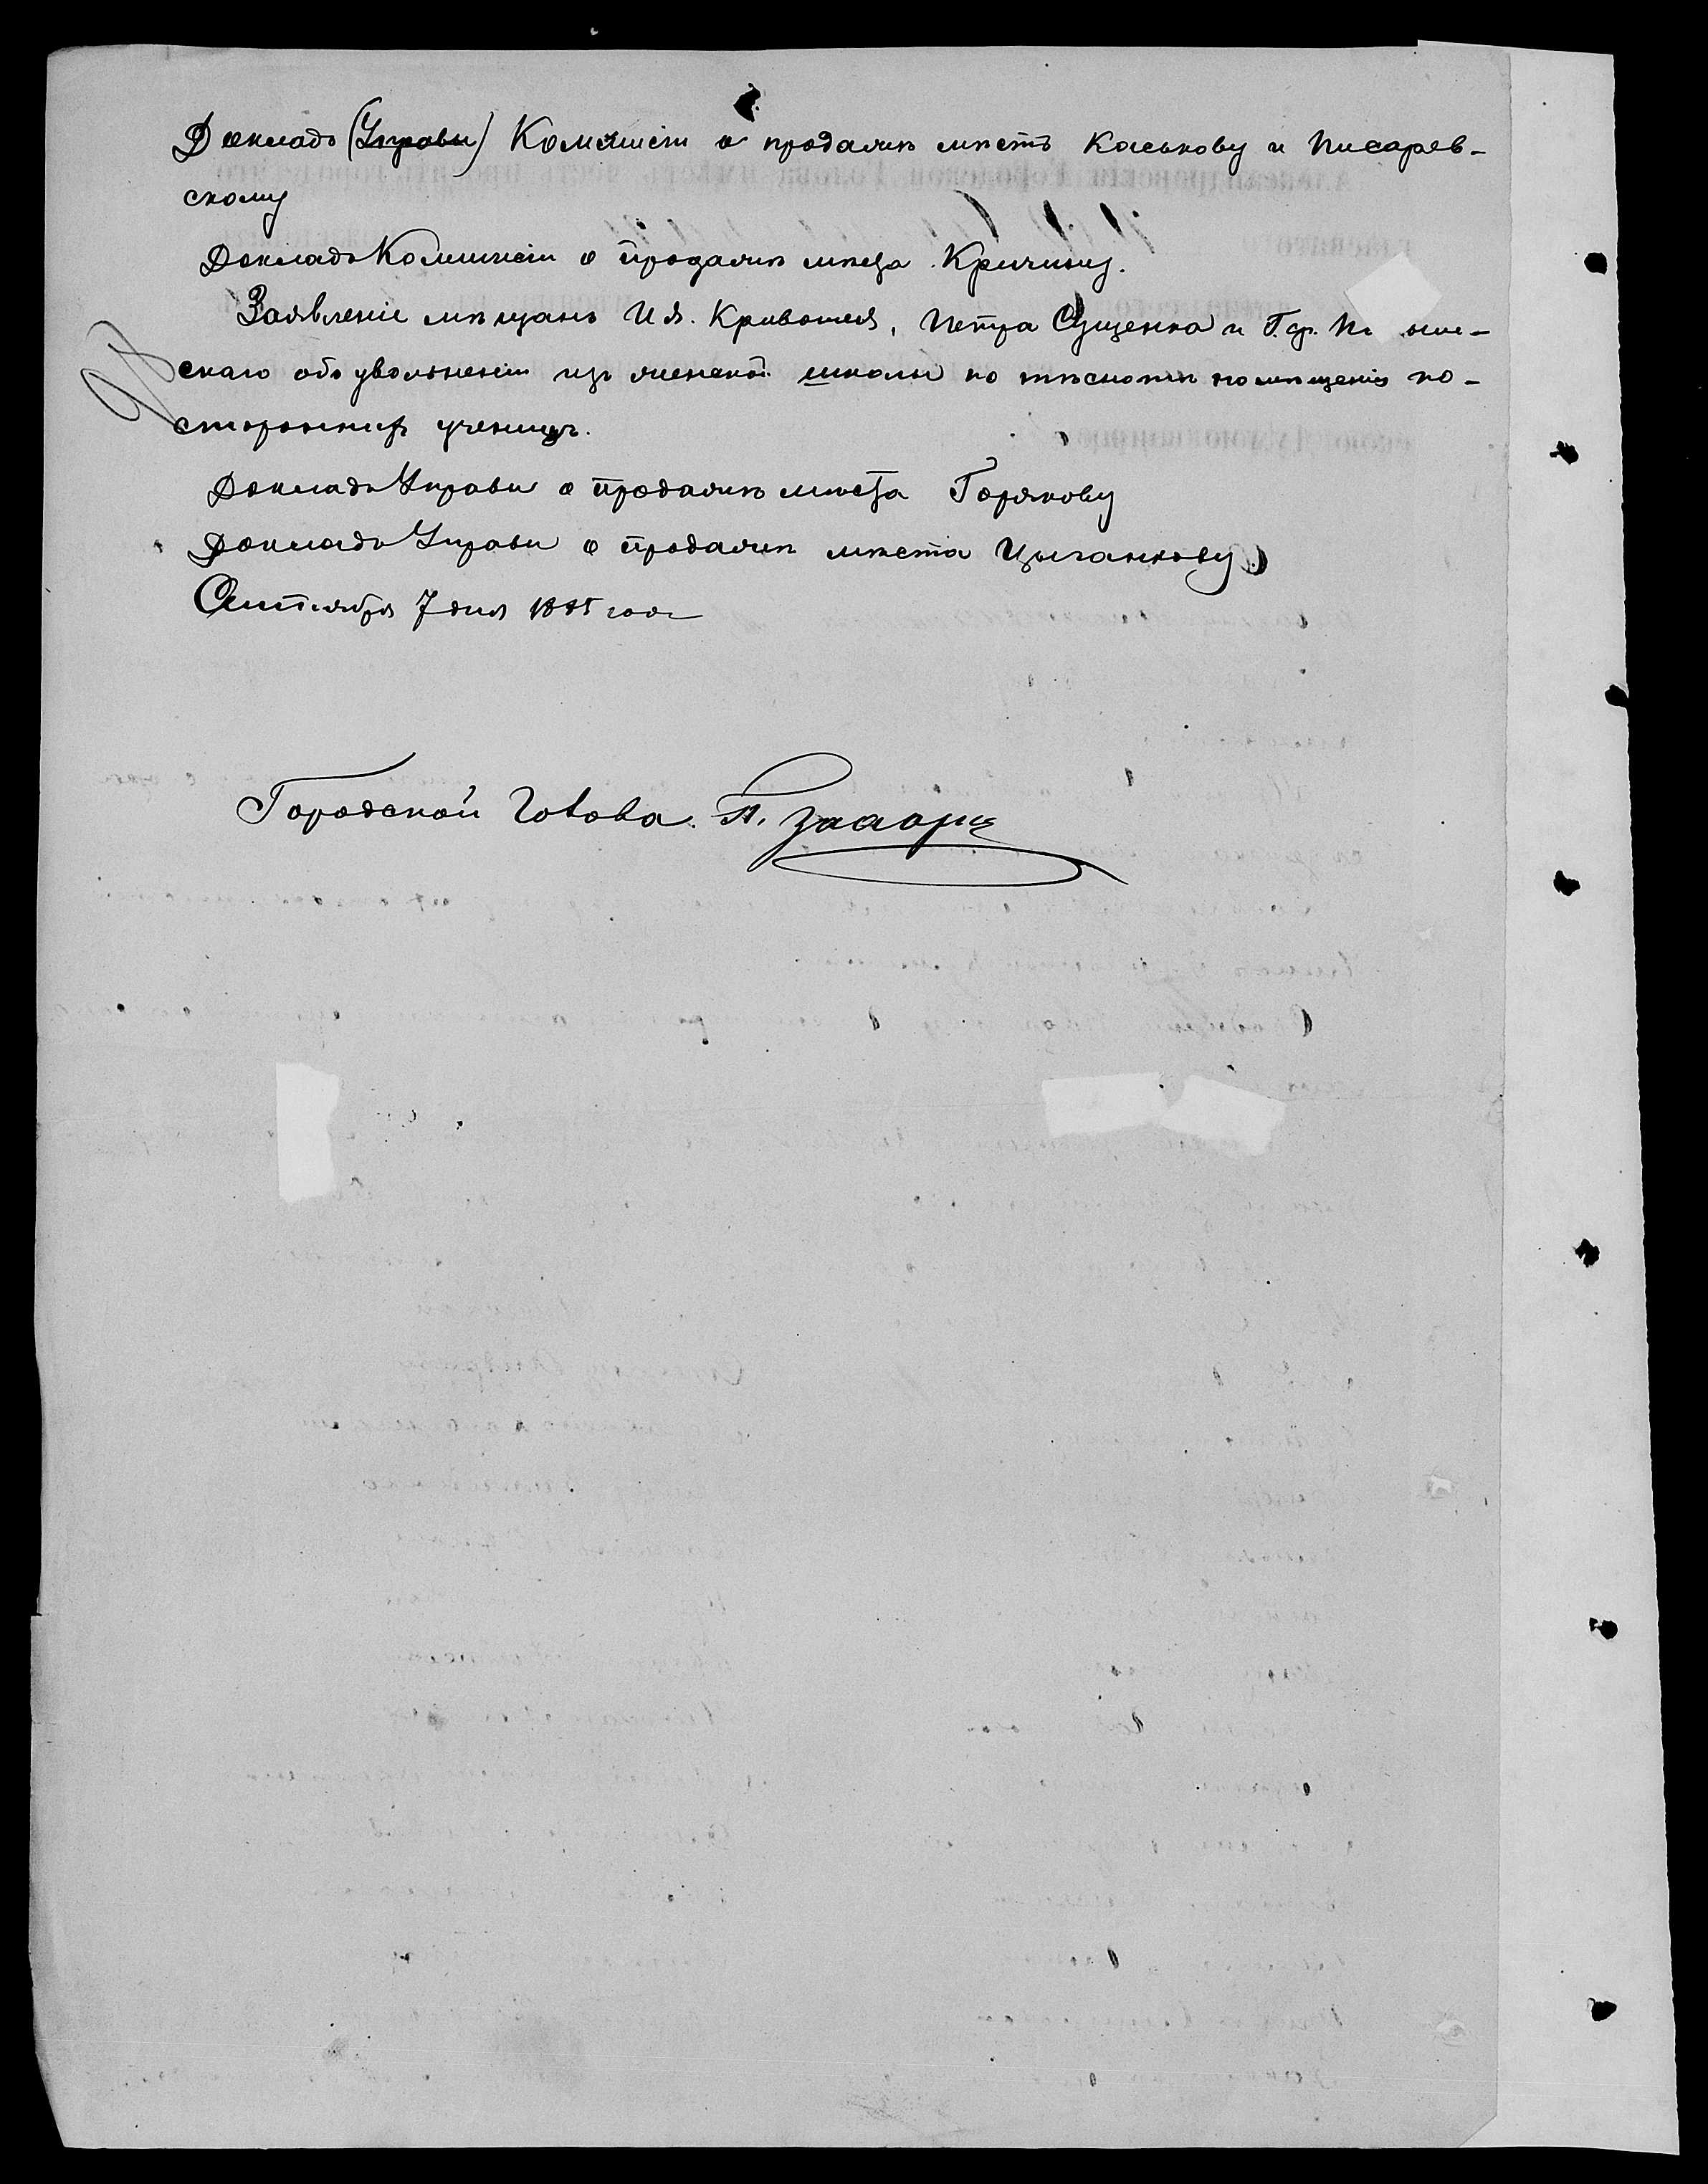 Докладъ (Управы) Комиссіи о продажѣ мѣстъ Каськову и Писарев-
скому
Докладъ Коммисіи о продажѣ мѣста Кричину.
Заявленіе мѣщанъ Ив. Кривошея, Петра Сущенка и Гр.
скаго объ увольненіи изъ женской школы по тѣснотѣ помѣщенія по-
стороннихъ ученицъ.
Докладъ Управы о продажѣ мѣста Горякову
Докладъ Управы о продажѣ мѣста Цыганкову
Сентября 7 дня года
Городской Голова.